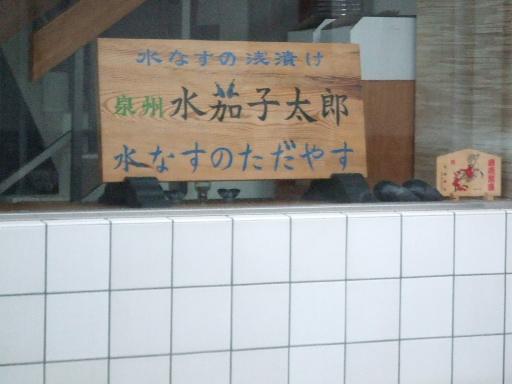 水なすの浅漬け
泉州 水茄子太郎
水なすのただやす